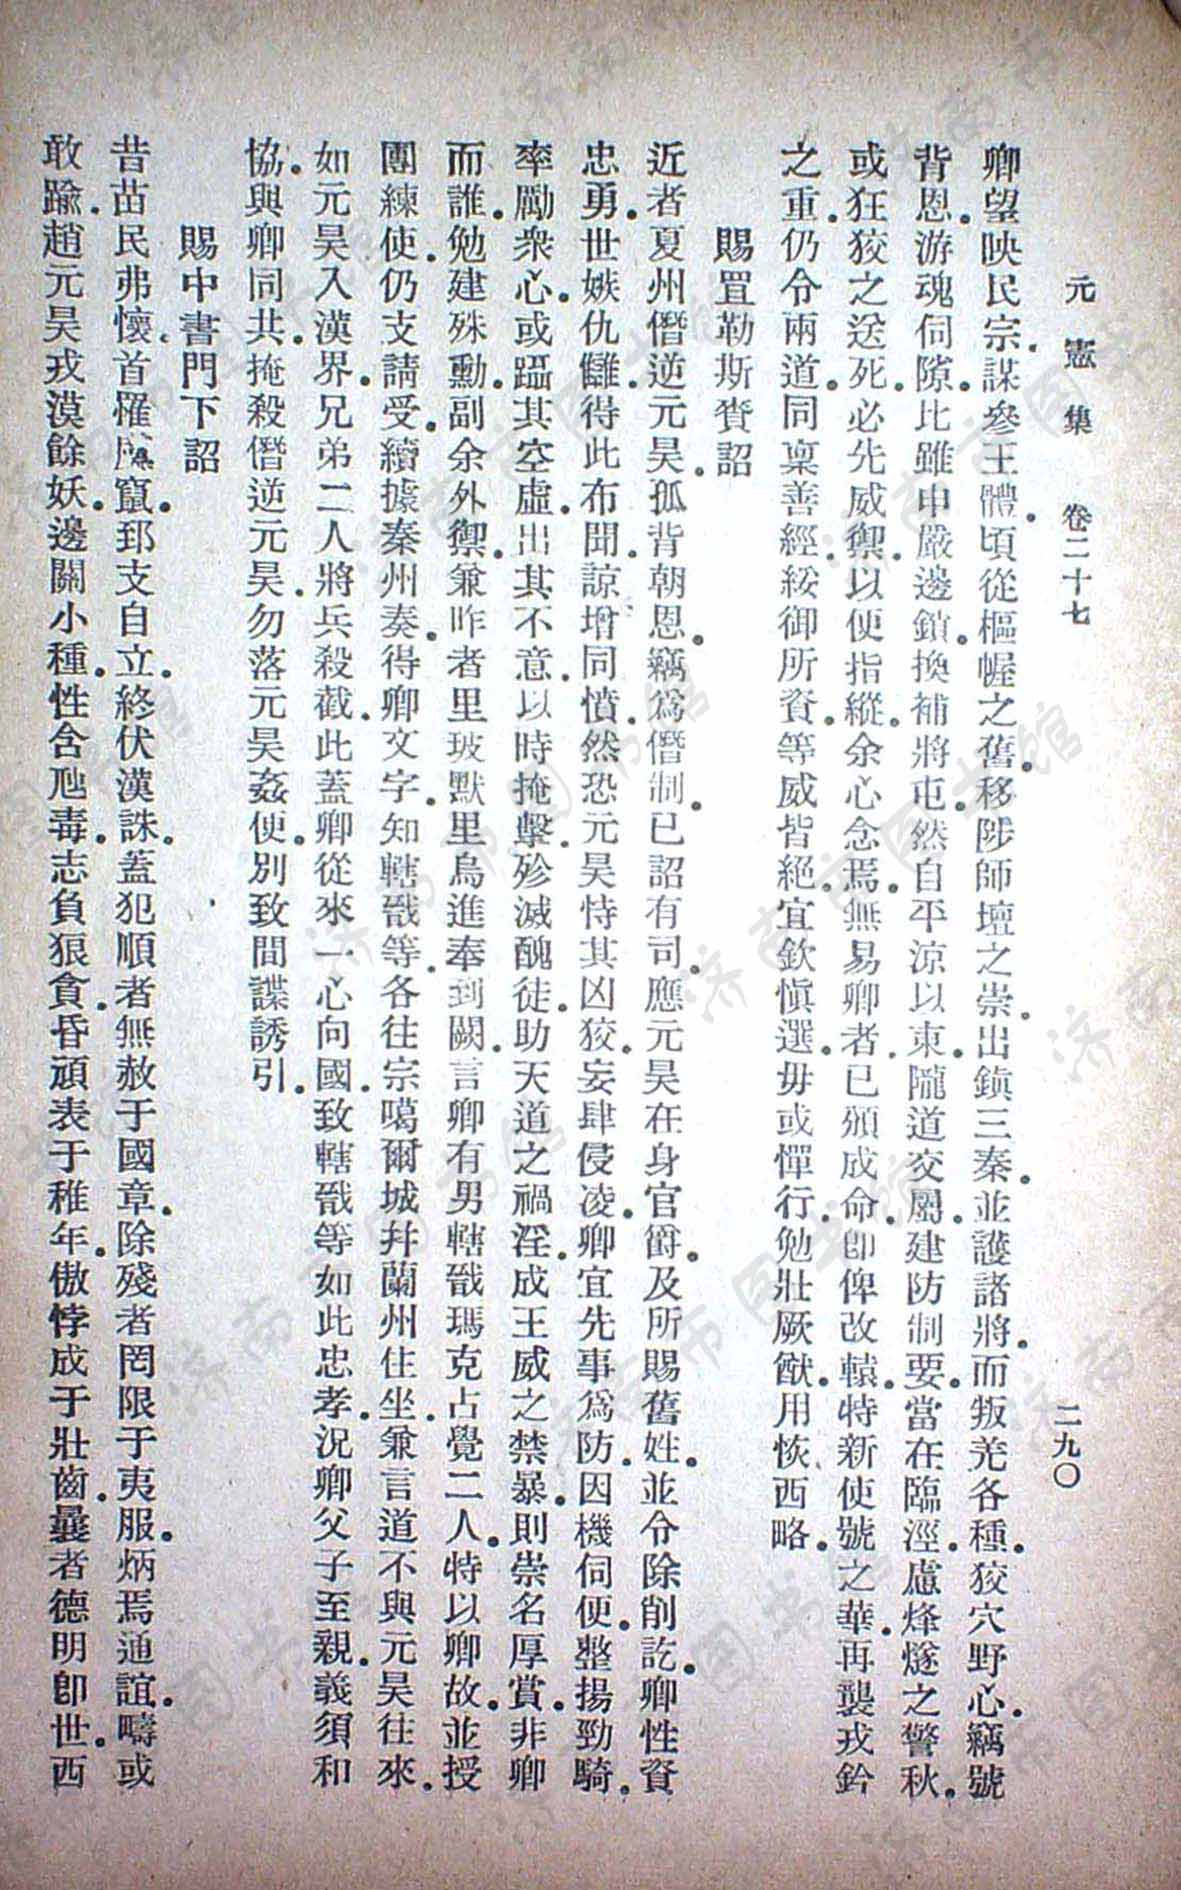 元憲集　卷二十七　二九〇
卿望映民宗．謀參王體．頃從樞幄之舊．移陟師壇之崇．出鎭三秦．並護諸將．而叛羌各種．狡穴野心．竊號
背恩．游魂伺隙．比雖申嚴邊鎖．換補將屯．然自平涼以東．隴道交屬．建防制要．當在臨涇．慮烽燧之警秋．
或狂狡之送死．必先威禦．以便指縱．余心念焉．無易卿者．已頒成命．卽俾改轅．特新使號之華．再襲戎鈐
之重．仍令兩道．同稟善經．綏御所資．等威皆絕．宜欽愼選．毋或憚行．勉壯厥猷．用恢西略．
賜罝勒斯賚詔
近者夏州僭逆元昊．孤背朝恩．竊爲僭制．已詔有司．應元昊在身官爵．及所賜舊姓．並令除削訖．卿性資
忠勇．世嫉仇讎．得此布聞．諒增同憤．然恐元昊恃其凶狡．妄肆侵凌．卿宜先事爲防．因機伺便．整揚勁騎．
率勵衆心．或躡其空虛．出其不意．以時掩擊．殄滅醜徒．助天道之禍淫．成王威之禁暴．則崇名厚賞．非卿
而誰．勉建殊勳．副余外禦．兼昨者里玻默里烏進奉到闕．言卿有男轄戩瑪克占覺二人．特以卿故．並授
團練使．仍支請受．續據秦州奏．得卿文字．知轄戩等．各往宗噶爾城幷蘭州住坐．兼言道不與元昊往來．
如元昊入漢界．兄弟二人．將兵殺截．此蓋卿從來一心向國．致轄戩等如此忠孝．況卿父子至親．義須和
協．與卿同共．掩殺僭逆元昊．勿落元昊姦便．別致間諜誘引．
賜中書門下詔
昔苗民弗懷．首罹竄．郅支自立．終伏漢誅．蓋犯順者無赦于國章．除殘者罔限于夷服．炳焉通誼．疇或
敢踰．趙元昊戎漠餘妖．邊關小種．性含虺毒．志負狠貪．昏頑表于稚年．傲悖成于壯齒．曩者德明卽世．西
济南市图书馆